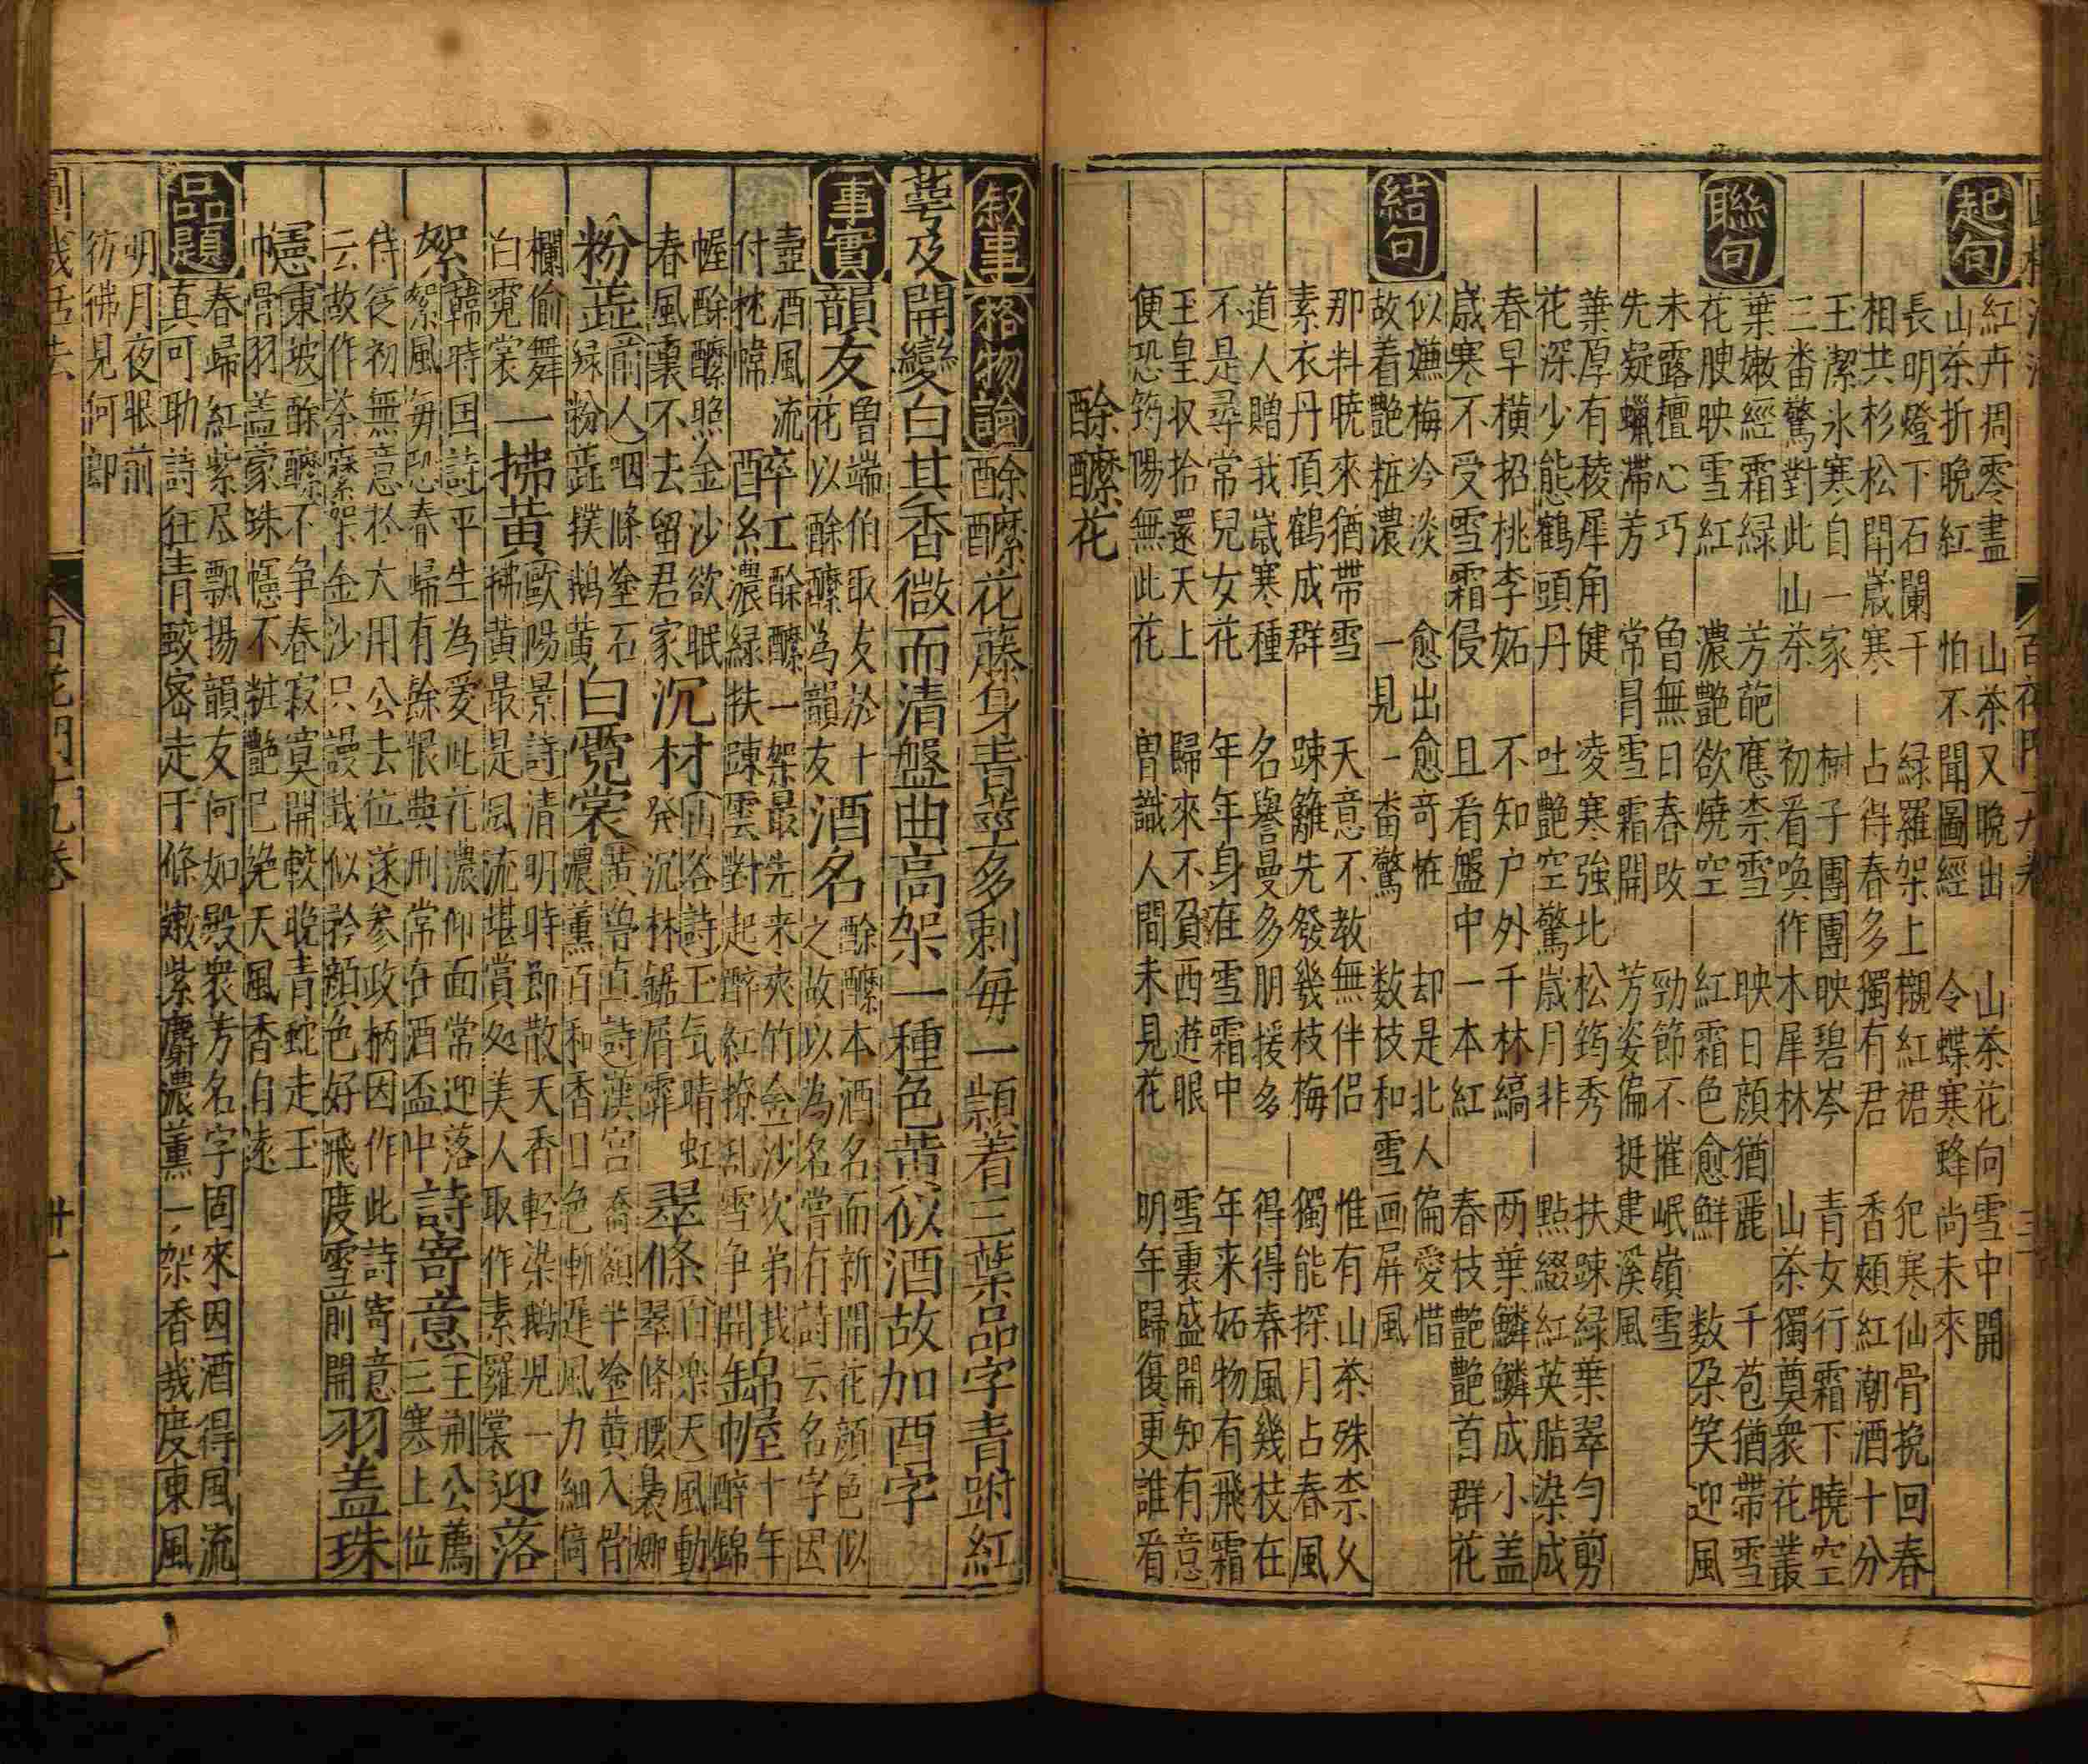 起句
紅卉周零盡 山茶又晩出 山茶花向雪中開
山茶折晩紅 怕不聞圖經 令蝶寒蜂尚未來
長明燈下石闌干 緑羅架上襯紅裙 犯寒仙骨挽回春
相共杉松鬧歲寒 占得春多獨有君 香頰紅潮酒十分
玉潔氷寒自一家 樹子團團映碧岑 青女行霜下曉空
三畨驚對此山茶 初看喚作木犀林 山茶獨奠衆花叢
聯句
葉嫩經霜緑 芳葩應柰雪 映日顔猶麗 千苞猶帶雪
花腴映雪紅 濃艷欲燒空 紅霜色愈鮮 数朶笑迎風
未露檀心巧 曽無日春改 勁節不摧岷嶺雪
先凝蠟滯芳 常冐雪霜開 芳姿偏挺建溪風
葉厚有稜犀角健 凌寒強比松筠秀 扶踈緑葉翠勻剪
花深少態鶴頭丹 吐艷空驚歳月非 點綴紅英脂染成
春早橫招桃李妬 不知户外千林縞 两葉鱗鱗成小盖
歳寒不受雪霜侵 且看盤中一本紅 春枝艷艷首群花
結句
似嫌梅吟淡 愈出愈奇恠 却是北人偏愛惜
故着艷粧濃 一見一畨驚 数枝和雪画屏風
那料暁來猶帶雪 天意不教無伴侣 惟有山茶殊柰久
素衣丹頂鶴成群 踈籬先發幾枝梅 獨能探月占春風
道人贈我歳寒種 名譽曼多朋援多 得得春風幾枝在
不是尋常兒女花 年年身在雪霜中 年来妬物有飛霜
玉皇収拾還天上 歸來不負西遊眼 雪裏盛開知有意
便恐筠陽無此花 曽識人間未見花 明年歸復更誰看
酴醾花
叙事 格物論 酴醾花藤身青莖多刺每一顈着三葉品字青跗紅
萼及開變白其香微而清盤曲高架一種色黄似酒故加酉字
事實 韻友 魯端伯取友於十
花以酴醾為韻友 酒名 酴醾本酒名而新開花顔色似
之故以為名嘗有詩云名字因
壺酒風流
付枕幃 醉紅 酴醾一架最先来夾竹金沙次弟栽
濃緑扶踈雲對起醉紅撩乱雪争開 錦幄 十年
醉錦
幄酴醾照金沙欲眠
春風裏不去留君家 沉材 山谷詩玉气晴虹
發沉林鋸屑霏 翠條 白楽天風動
翠條腰裊娜
粉蕋 前人呬條塗石
緑粉蕋撲鵝黄 白霓裳 黄魯直詩漢宮嬌額半塗黄入骨
濃薰百和香日色斬遲風力細倚
欄偷舞
白霓裳 一拂黄 歐陽景詩清明時節散天香輕染鵝児一
拂黄最是風流堪賞処美人取作素羅裳 迎落
絮 韓時国詩平生為爱此花濃仰面常迎落
絮風每恐春歸有餘恨典刑常在酒盃中 詩寄意 王荊公薦
三寒上位
侍從初無意於大用公去位遂参政柄因作此詩寄意
云故作茶䕷架金沙只謾栽似矜顔色好飛度雪前開 羽盖珠
幰 東坡酴醾不争春寂寞開較晚青蛇走玉
骨羽盖蒙珠幰不粧艷已絶天風香自遠
品題 春歸紅紫尽飄揚韻友何如殿衆芳名字固來因酒得風流
真可助詩狂青毀密走于條嫩紫麝濃薰一架香哉度東風
明月夜眼前
彷彿見何郎
百花門十九卷
廿一